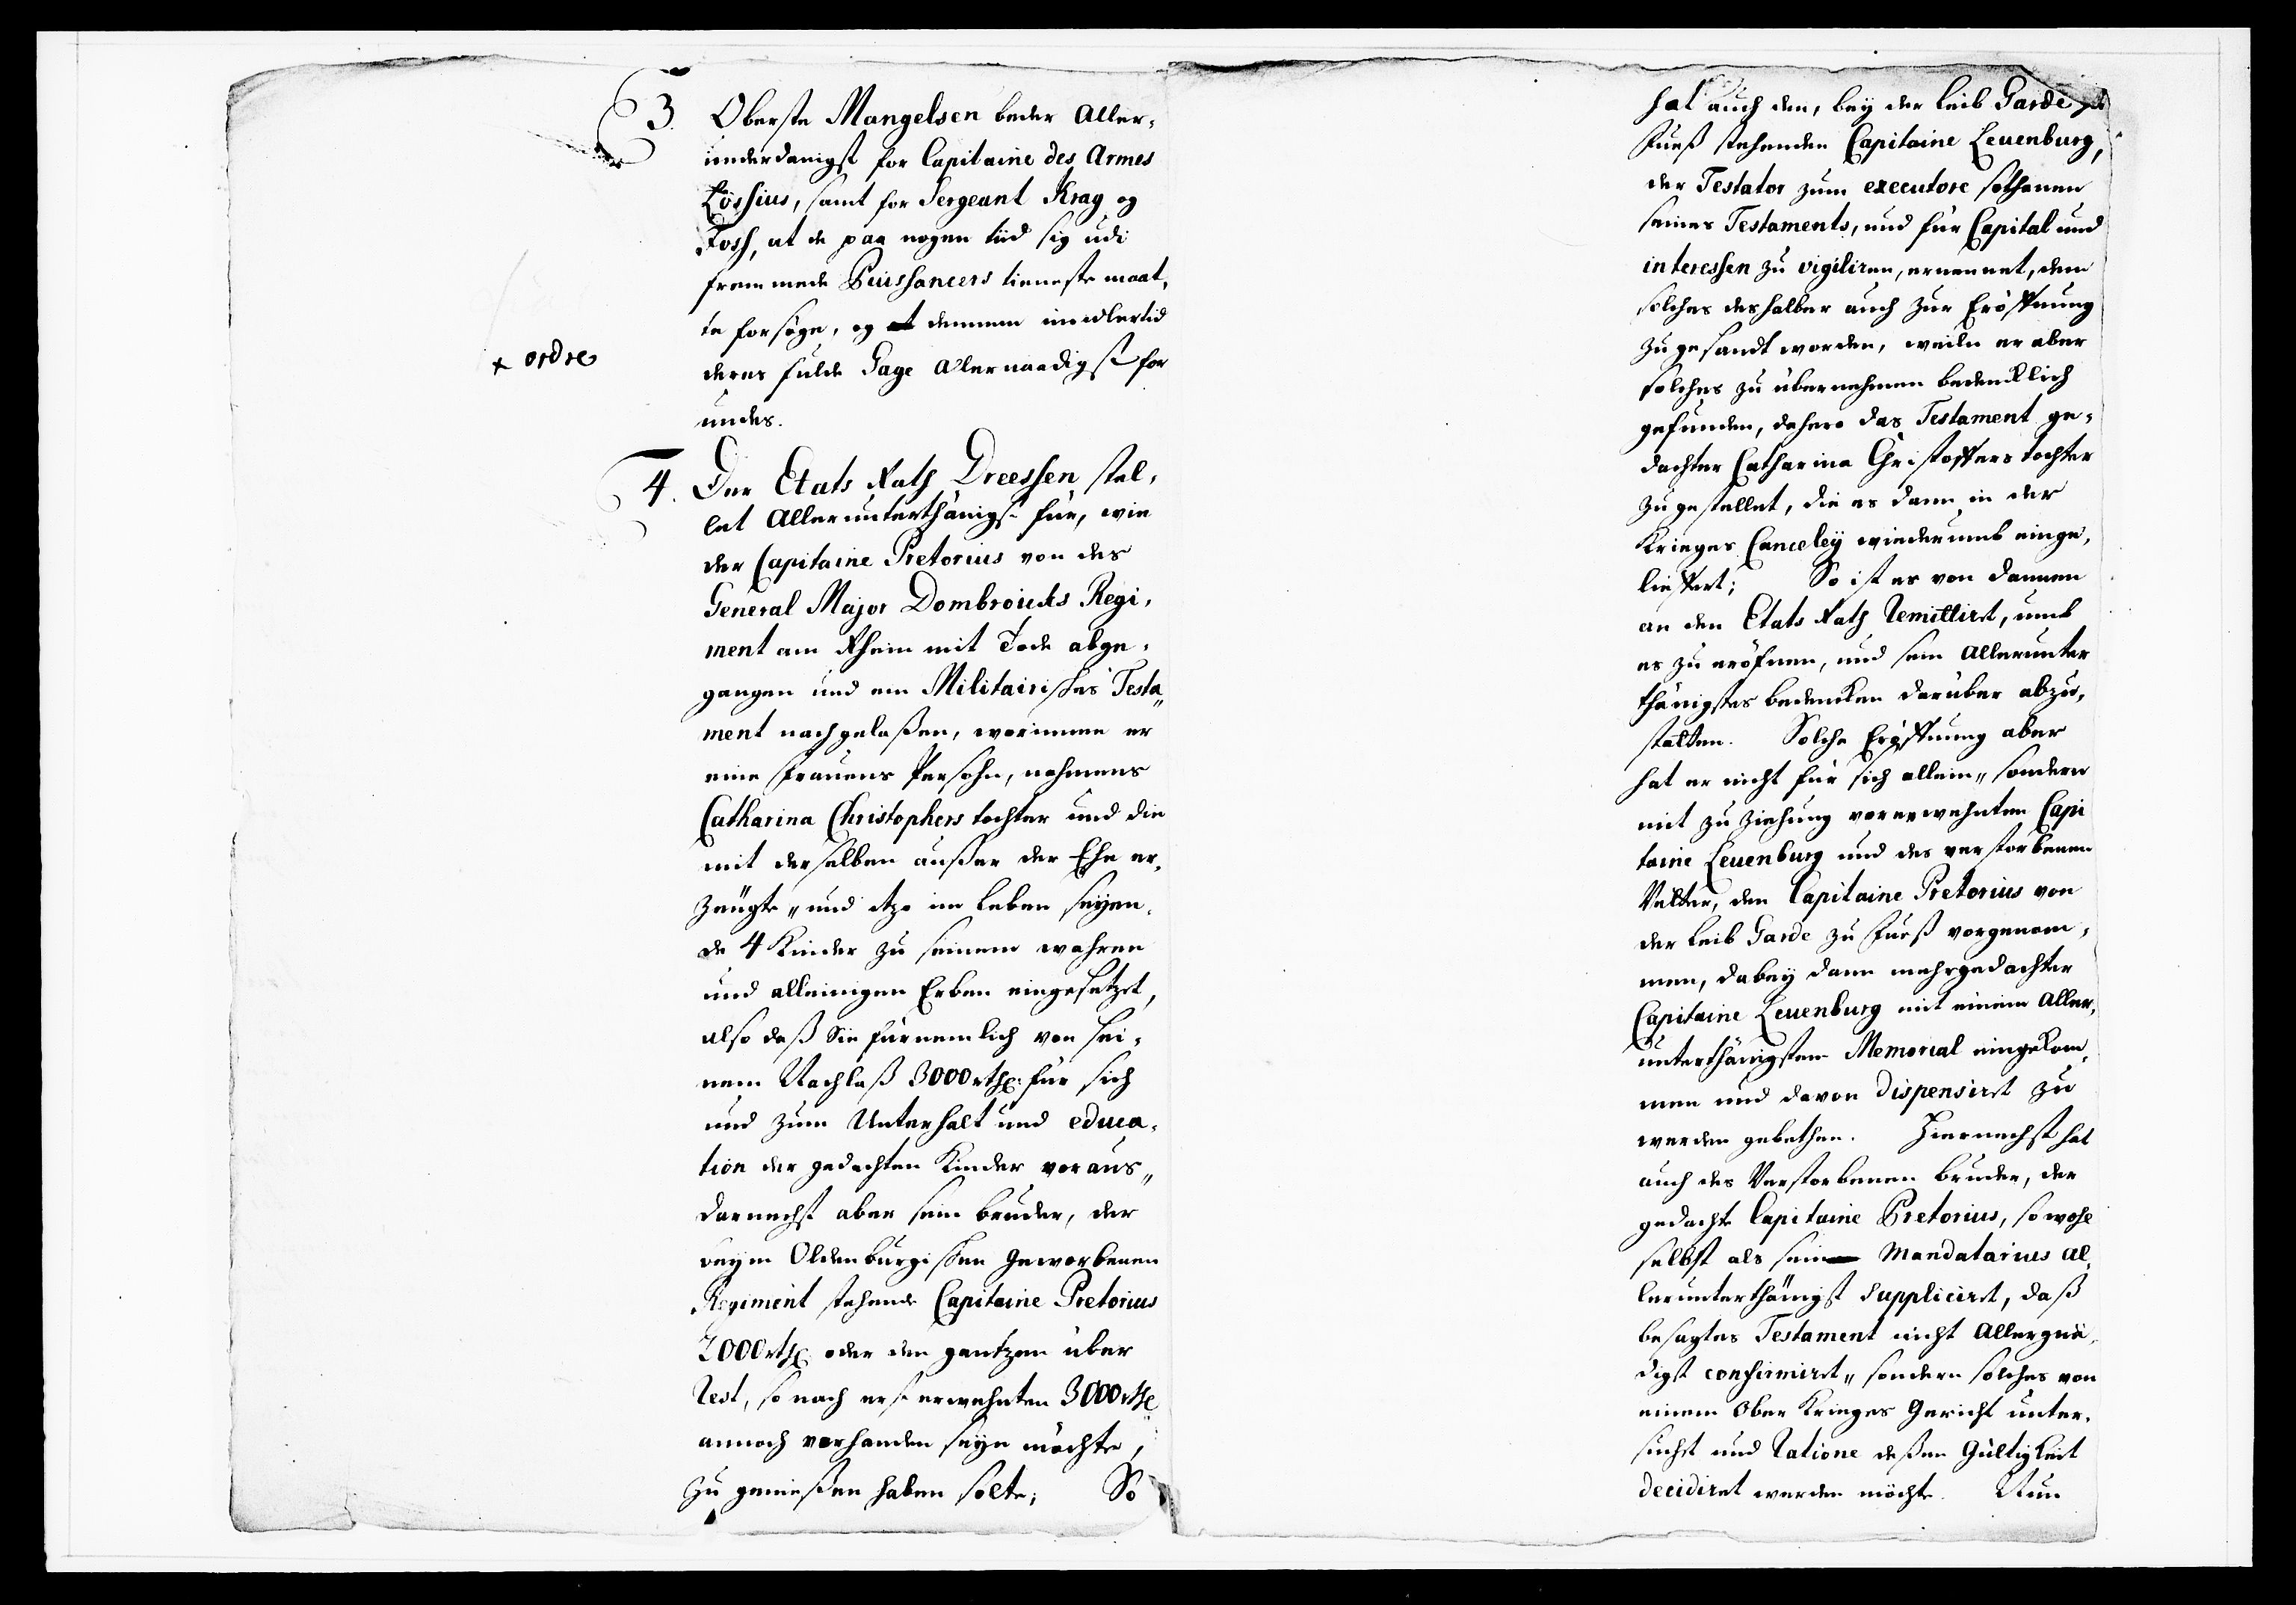 3. Oberste Mangelsen beder Aller-
underdanigst for Capitaine des Armes
Lössius, samt for Sergeant Krag og
Fosh, at de paa nogen tiid sig udi
fremmede Puissancers tieneste maat-
te forsøge, og at dennem imidlertid
deres fulde Gage Allernaadigst for
undes.
x ordre
4. Der Etats Rath Dreessen stel-
let Allerunterthänigst für, wie
der Capitaine Pretorius von des
General Major Dombroicks Regi-
ment am Rhein mit Tode abge-
gangen und ein Militairisches Testa-
ment nachgelaßen, worinnen er
eine Frauens Persohn, nahmens
Catharina Christophers tochter und die
mit derselben außer der Ehe er-
zeügte, und itzo im Leben seyen-
de 4 Kinder zu seinem wahren
und alleinigen Erben eingesetzet,
also daß Sie fürnemlich von sei-
nem Nachlaß 3000 rthl: für sich
und zum Unterhalt und educa-
tion der gedachten Kinder voraus,
darnechst aber sein bruder, der
beym Oldenburgischen Geworbenen
Regiment stehende Capitaine Pretorius
2000 rthl: oder den gantzen über
Rest, so nach erst erwehnten 3000 rthl:
annoch vorhanden seyn möchte,
zu genießen haben solte; So
hat auch den, bey der Leib Garde zu
Fueß stehenden Capitaine Leuenburg,
der Testator zum executore sothanen
seines Testaments, und für Capital und
interessen zu vigiliren, ernennet, dem
solches deshalber auch zur Eröffnung
zugesandt worden, weiln er aber
solches zu übernehmen bedencklich
gefunden, dahero das Testament ge-
dachter Catharina Christoffers tochter
zugestellet, die es dann in der
Krieges Canceley wiederumb einge-
lieffert; So ist es von dannen
an den Etats Rath Remittiret, umb
es zu eröfnen, und sein Allerunter
thänigstes bedencken darüber abzu-
statten. Solche Eröffnung aber
hat er nicht für sich allein, sondern
mit zu ziehung vorerwehnten Capi
taine Leuenburg und des verstorbenen
Vetter, den Capitaine Pretorius von
der Leib Garde zu Fueß vorgenom-
men, dabey dann mehrgedachter
Capitaine Leuenburg mit einem Aller-
unterthänigsten Memorial eingekom-
men und davon dispensiret zu
werden gebethen. Hiernechst hat
auch des Verstorbenen bruder, der
gedachte Capitaine Pretorius, so wohl
selbst als sein Mandatarius al-
lerunterthänigst suppliciret, daß
besagtes Testament nicht Allergnä-
digst confirmiret, sondern solches von
einem Ober Krieges Gericht unter-
suchet und Ratione deßen Gültigkeit
decidiret werden möchte. Nun